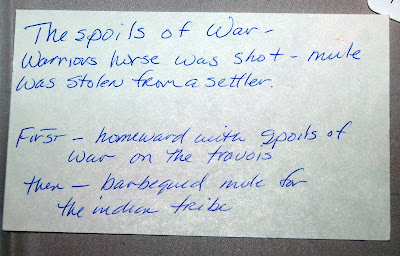 The spoils of War -
Warriors horse was shot - mule
was stolen from a settler.
First - homeward with spoils of
war on the travois
then - barbequed mule for
the indian tribe